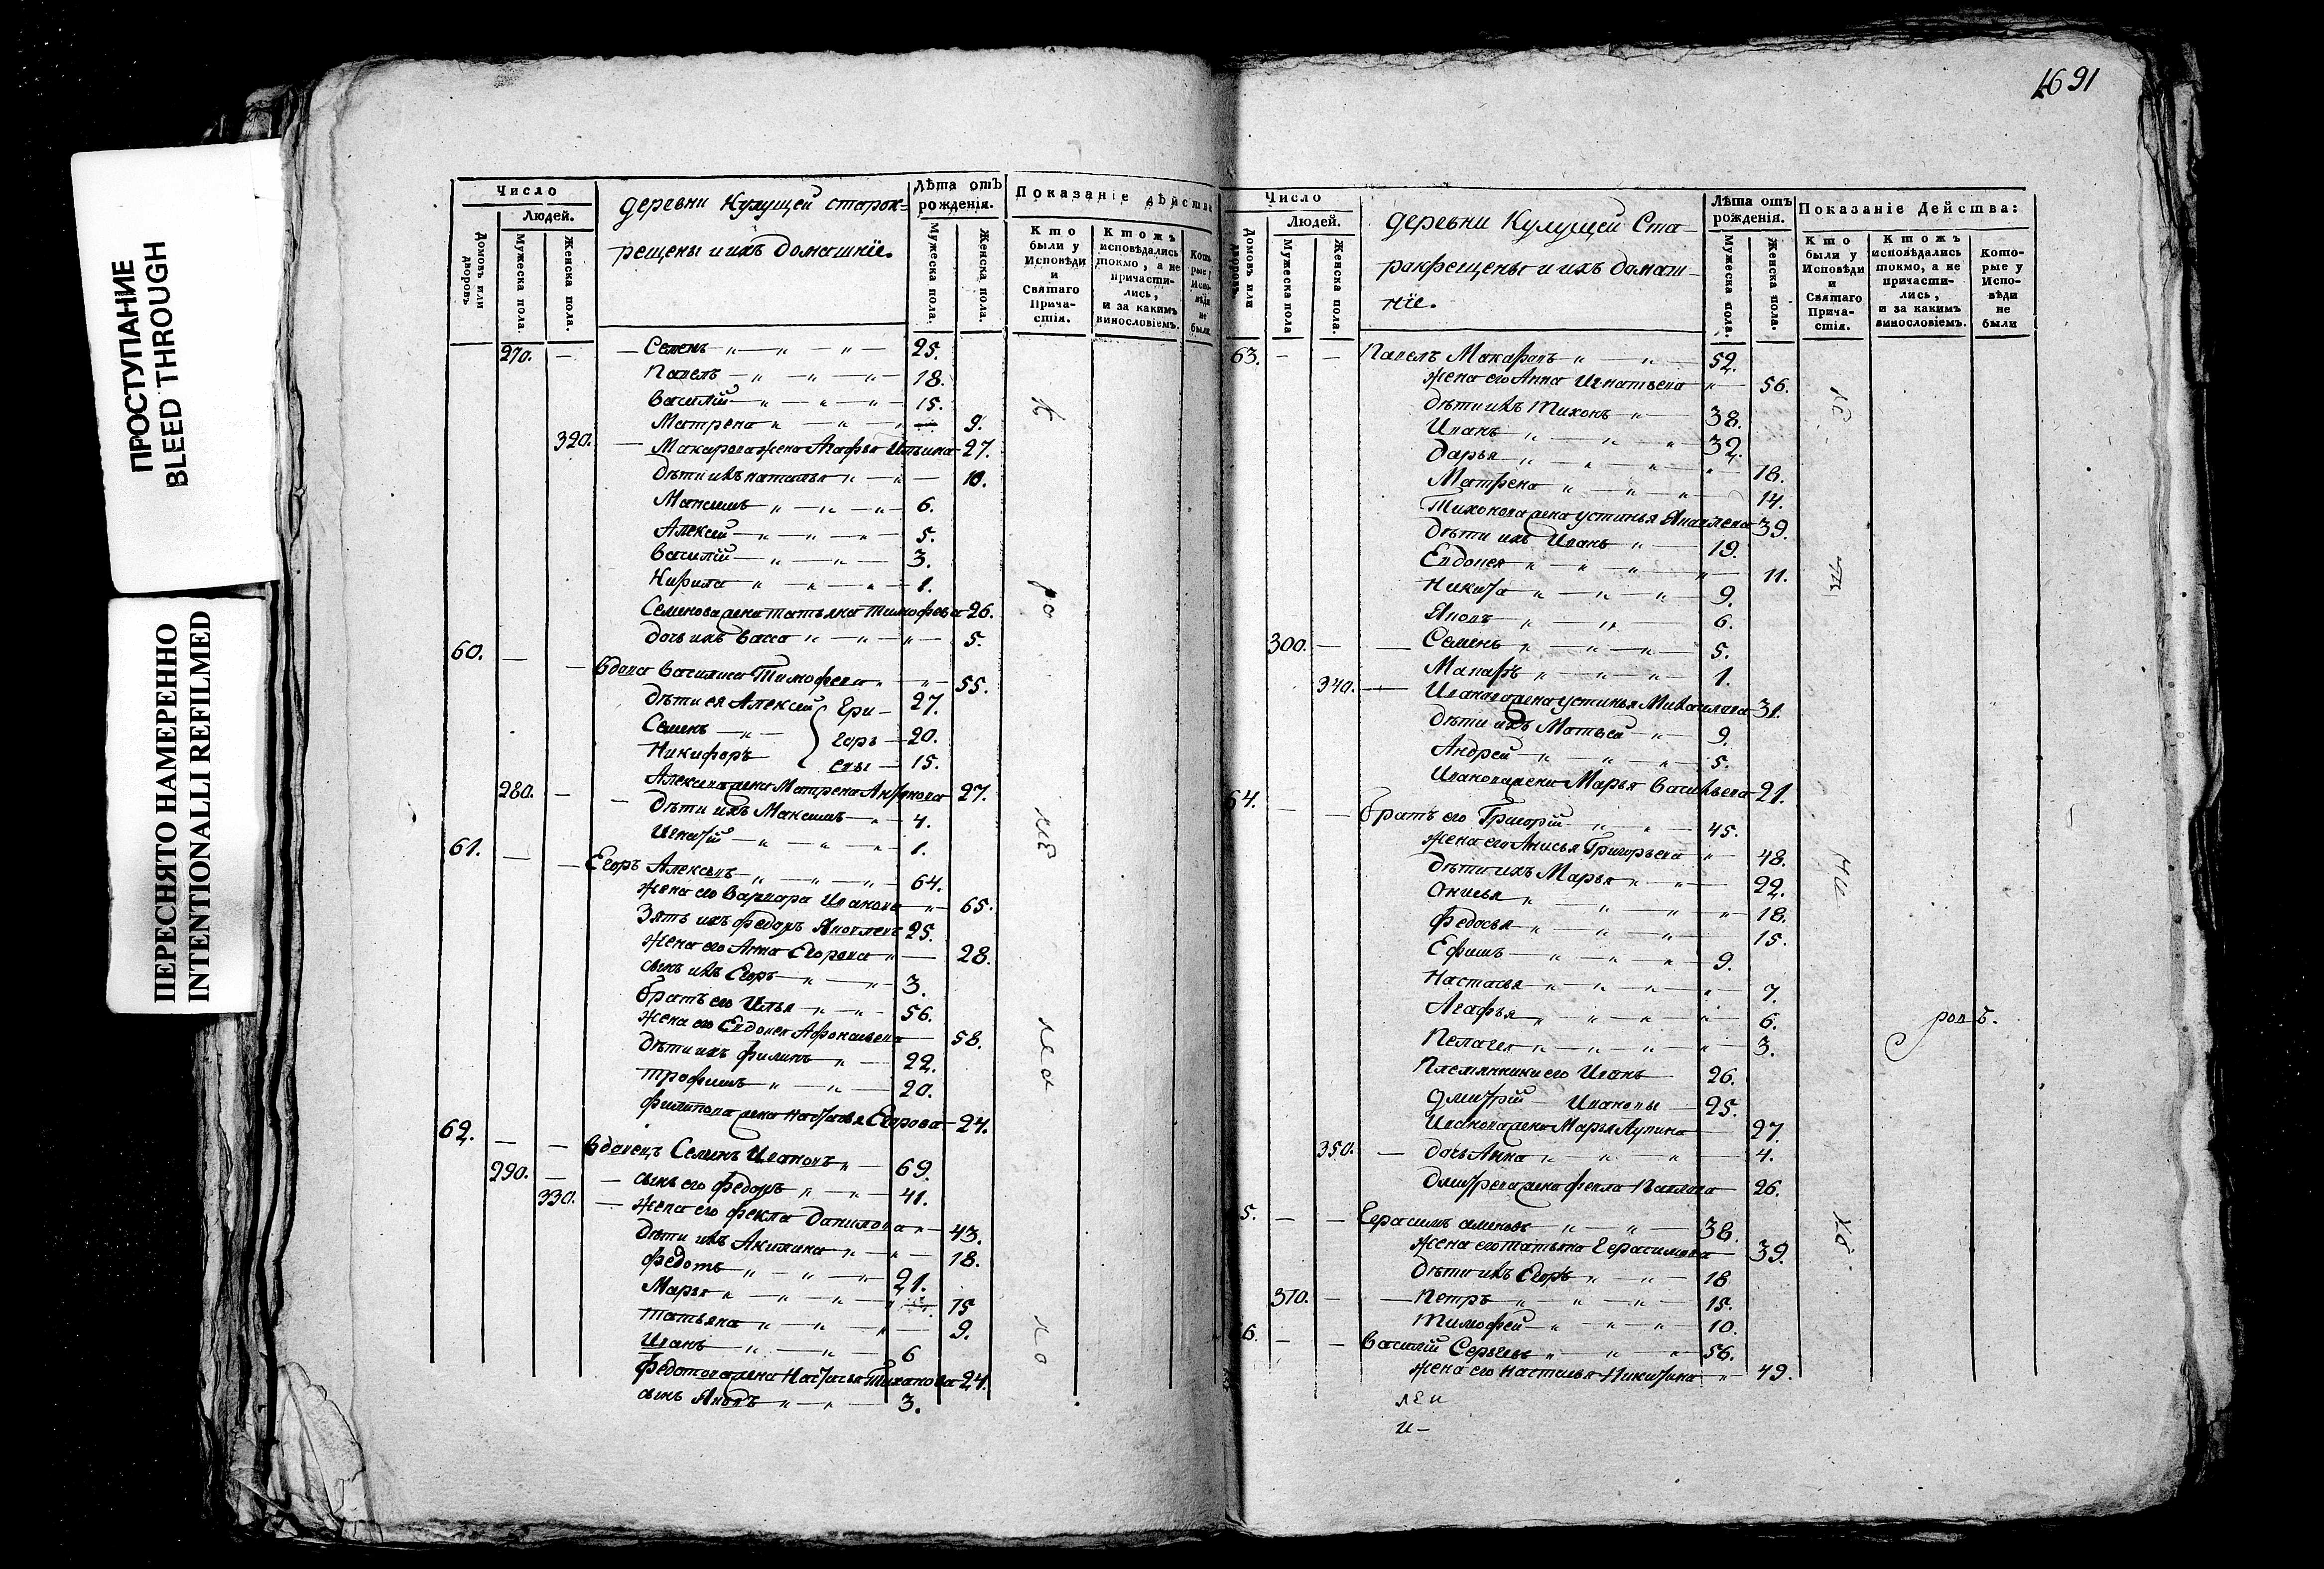 ПРОСТУПАНИЕ
BLEED THROUGH
ПЕРЕСНЯТО НАМЕРЕННО
INTENTIONALLI REFILMED
Число
Людей.
Домовъ или дворовъ
Мужеска пола.
Женска пола.
деревни Кулущей старок-
рещены и ихъ домашнїе.
Лѣта отъ рожденія.
Мужеска пола.
Женска пола.
Показаніе дѣйства
Кто были у Исповѣди и Святаго Прича-стія.
Ктожъ исповѣдались токмо, а не причасти-лись, и за какимъ винословіемъ.
270. — — Семенъ 25.
Павелъ 18.
Василїй 15.
Матрена 9.
320. — Макарова жена Агафья Ильина 27.
Дѣти ихъ Наталья 10.
Максимъ 6.
Алексѣй 5.
Василїй 3.
Кирила 1.
Семенова жена Татьяна Тимофева 26.
дочь ихъ Васса 5.
60. — — Вдова Василиса Тимофеева 55.
Дѣти ея Алексѣй Гри- 27.
Семенъ горь 20.
Никифоръ евы 15.
Алексѣева жена Матрена Антонова 27.
280. — — Дѣти ихъ Максимъ 4.
Игнатїй 1.
61. — — Егоръ Алексѣевъ 64.
жена его Варвара Иванова 65.
Зять ихъ Федоръ Яковлевъ 25.
жена его Анна Егорова 28.
сынъ ихъ Егоръ 3.
братъ его Илья 56.
жена его Евдокея Афонасьева 58.
Дѣти ихъ Филипъ 22.
Трофимъ 20.
Филипова жена Настасья Егорова 24.
62. — — Вдовецъ Семенъ Ивановъ 69.
290. — — сынъ его Федоръ 41.
330. — жена его Фекла Данилова 43.
Дѣти ихъ Акилина 18.
Федотъ 21.
Марья 15
Татьяна 9.
Иванъ 6
Федотова жена Настасья Тиханова 24.
сынъ Яковъ 3.
1691
Число
Людей.
Домовъ или дворовъ.
Мужеска пола
Женска пола.
деревни Кулущей Ста-
рокрещены и ихъ домаш-
нїе.
Лѣта отъ рожденія.
Мужеска пола.
Женска пола.
Показаніе Действа:
Кто были у Исповѣди и Святаго Прича-стія.
Ктожъ исповѣдались токмо, а не причасти-лись, и за какимъ винословіемъ.
Кото-рые у Испо-вѣди не были
63. — — Павелъ Макаровъ 52.
жена его Анна Игнатьева 56.
Дѣти ихъ Тихонъ 38.
Иванъ 32.
Дарья 18.
Матрена 14.
Тихонова жена Устинья Яковлева 39.
Дѣти ихъ Иванъ 19.
Евдокея 11.
Никита 9.
Яковъ 6.
300. — — Семенъ 5.
Макаръ 1.
340. — Иванова жена Устинья Михаилова 31.
Дѣти ихъ Матвѣй 9.
Андрей 5.
Иванова жена Марья Васильева 21.
64. — — братъ его Григорїй 45.
жена его Анисья Григорьева 48.
Дѣти ихъ Марья 22.
Онисья 18.
Федосья 15.
Ефимъ 9.
Настасья 7.
Агафья 6.
Пелагея 3.
Племянники его Иванъ 26.
Дмитрїй Ивановы 25.
Иванова жена Марья Лупина 27.
350. — дочь Анна 4.
Дмитрева жена Фекла Павлова 26.
5. — — Герасимъ 38.
жена его Татьяна Герасимова 39.
Дѣти ихъ Егоръ 18
310. — — Петръ 15.
Тимофей 10.
6. — — Василїй Сергѣевъ 56.
жена его Настасья Никитина 49.